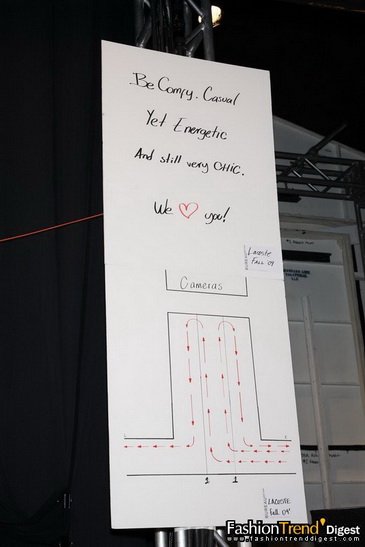 Be Comfy. Casual
Yet Energetic
And still very CHIC.
We ♥ you!
Lacoste
Fall '09
Cameras
1 1
LACOSTE
Fall 09'
FashionTrend Digest
www.fashiontrenddigest.com